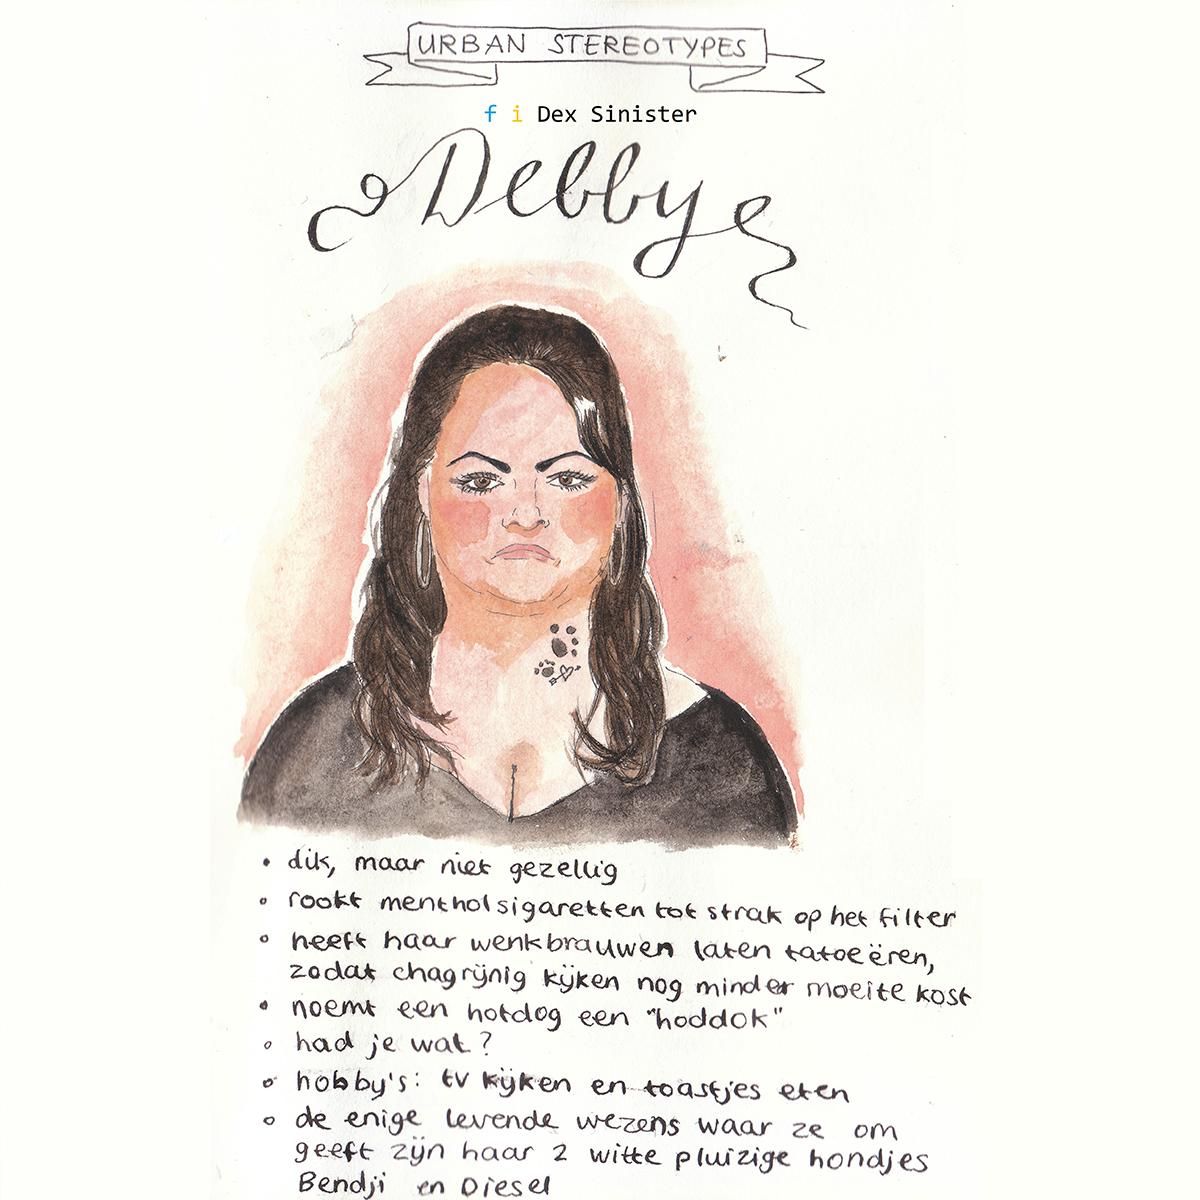 URBAN STEREOTYPES
f i Dex Sinister
Debby
• dik, maar niet gezellig
• rookt mentholsigaretten tot strak op het filter
• heeft haar wenkbrauwen laten tatoeëren,
zodat chagrijnig kijken nog minder moeite kost
• noemt een hotdog een "hoddok"
• had je wat?
• hobby's: tv kijken en toastjes eten
• de enige levende wezens waar ze om
geeft zijn haar 2 witte pluizige hondjes
Bendji en Diesel